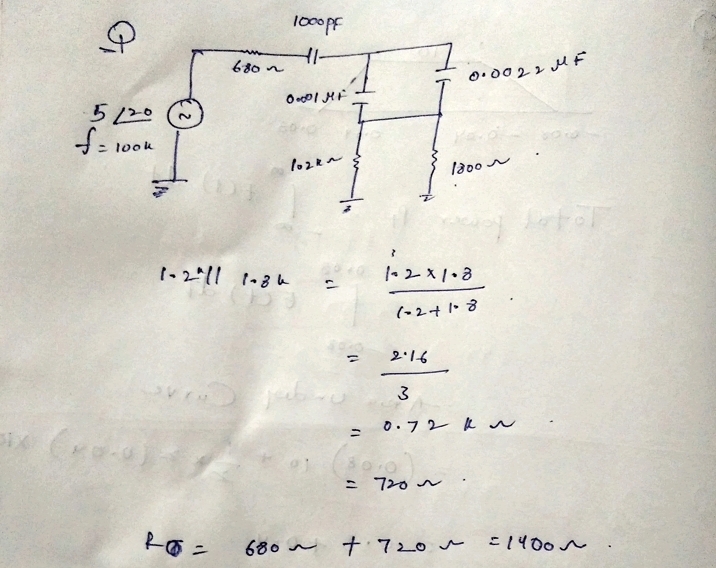 Q
1000pf
680 Ω
0.0022 μF
0.001 μF
5 ∠20
f = 100k
1.2k Ω
1800 Ω
1.2k || 1.8k = 1.2 x 1.8
1.2 + 1.8
= 2.16
3
= 0.72 k Ω
= 720 Ω
= 680 Ω + 720 Ω = 1400 Ω.